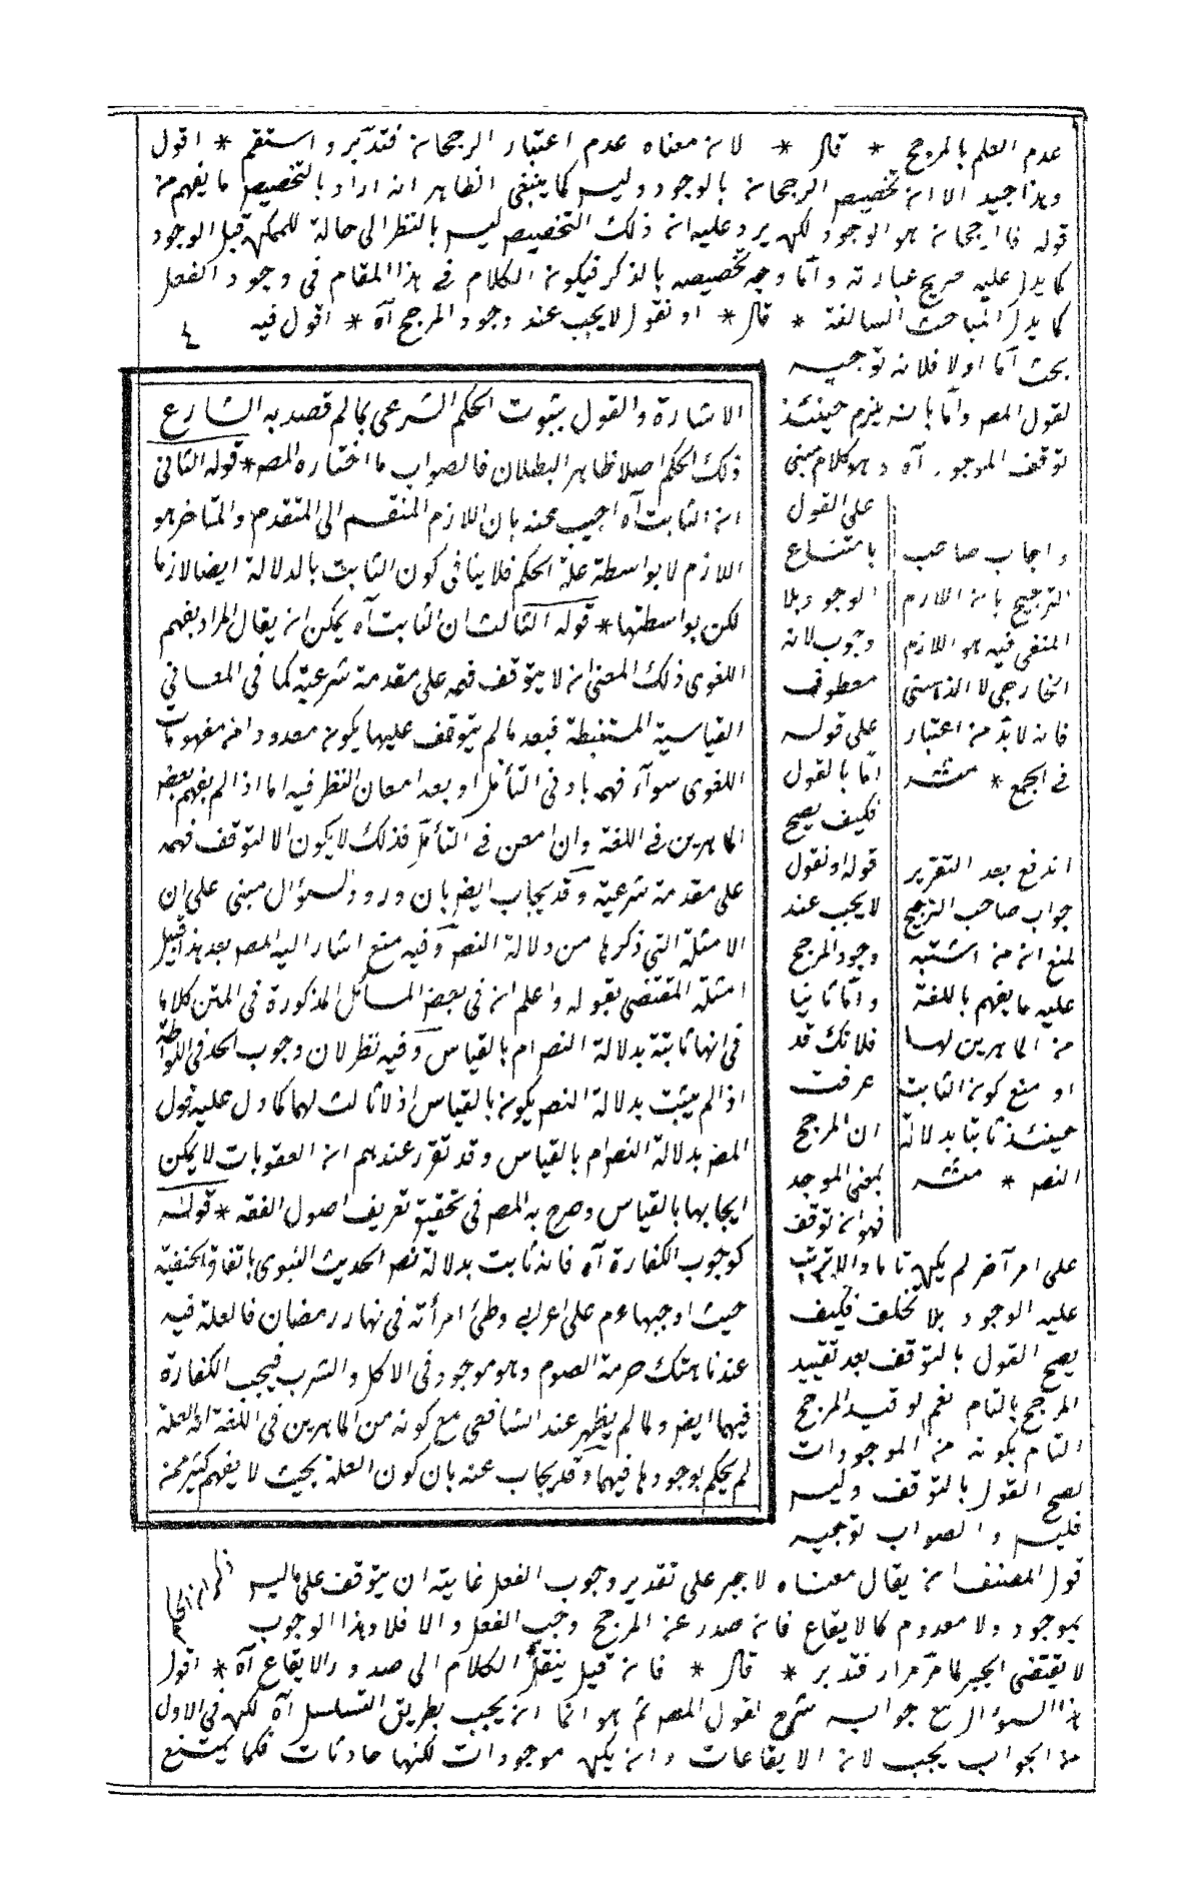 عدم العلم بالمرجح * قال * لان معناه عدم اعتبار الرجحان فتدبر واستقم * اقول
وهذا جيد الا ان تخصيص الرجحان بالوجود وليس كما ينبغي الظاهر انه اراد بالتخصيص ما يفهم من
قوله فالرجحان هو الوجود لكن يرد عليه ان ذلك التخصيص ليس بالنظر الى حالة للممكن قبل الوجود
كما يدل عليه صريح عبارته واما وجه تخصيصه بالذكر فيكون الكلام في هذا المقام في وجود الفعل
كما يدل المباحث السالفة * قال * او نقول لا يجب عند وجود المرجح آه * اقول فيه
٤
بحث اما اولا فلانه توجيه
لقول المصـ واما بانه يلزم حينئذ
توقف الموجود آه وهو كلام مبنى
على القول
بامتناع
الوجود بلا
وجوب لانه
معطوف
على قوله
اما بالقول
فكيف يصح
قوله او نقول
لا يجب عند
وجود المرجح
واما ثانيا
فلانك قد
عرفت
ان المرجح
بمعنى الموجد
فهو ان توقف
على امر آخر لم يكن تاما والا لترتب
عليه الوجود بلا تخلف فكيف
يصح القول بالتوقف بعد تقييد
المرجح بالتام نعم لو قيد المرجح
التام بكونه من الموجودات
لصح القول بالتوقف وليس
فليس والصواب توجيه
قول المصنف ان يقال معناه لا جبر على تقدير وجوب الفعل غايته ان يتوقف على ما ليس
بموجود ولا معدوم كالايقاع فان صدر عن المرجح وجب الفعل والا فلا وهذا الوجوب
لا يقتضى الجبر كما مر مرارا فتدبر * قال * فان قيل ينقل الكلام الى صدور الايقاع آه * اقول
هذا السؤال مع جوابه شرح لقول المصـ ثم هو اما ان يجب بطريق التسلسل آه لكن في الاول
من الجواب يجب لان الايقاعات وان يكن موجودات لكنها حادثات فكما يمتنع
واجاب صاحب
الترجيح بان اللازم
المنفى فيه هو اللازم
الخارجي لا الذهني
فانه لا بد من اعتبار
في الجمع * منه
اندفع بعد التقرير
جواب صاحب الترجيح
لمنع ان من اشتبه
عليه ما يفهم باللغة
من الماهرين لها
او منع كون الثابت
حينئذ ثابتا بدلالة
النص * منه
الاشارة والقول بثبوت الحكم الشرعي بما لم قصد به الشارع
ذلك الحكم اصلا ظاهر البطلان فالصواب ما اختاره المصـ * قوله الثاني
ان الثابت آه اجيب عنه بان اللازم المنقسم الى المتقدم والمتأخر هو
اللازم لا بواسطة علة الحكم فلا ينافى كون الثابت بالدلالة ايضا لازما
لكن بواسطتها * قوله الثالث ان الثابت آه يمكن ان يقال المراد بفهم
اللغوى ذلك المعنى ان لا يتوقف فهمه على مقدمة شرعية كما في المعاني
القياسية المستنبطة فبعد ما لم يتوقف عليها يكون معدودا من مفهومات
اللغوى سوآء فهم بادنى التأمل او بعد امعان النظر فيه اما اذا لم يفهم بعض
الماهرين في اللغة وان امعن في التأمل فذلك لا يكون الا لتوقف فهمه
على مقدمة شرعية وقد يجاب ايضا بان ورود السؤال مبنى على ان
الامثلة التي ذكرها من دلالة النص وفيه منع اشار اليه المصـ بعد هذا قبيل
امثلة المقتضى بقوله واعلم ان في بعض المسائل المذكورة في المتن كلاما
في انها ثابتة بدلالة النص ام بالقياس وفيه نظر لان وجوب الحد في اللواطة
اذا لم يثبت بدلالة النص يكون بالقياس اذ لا ثالث لهما كما دل عليه قول
المصـ بدلالة النص ام بالقياس وقد تقرر عندهم ان العقوبات لا يمكن
ايجابها بالقياس وصرح به المصـ في تحقيق تعريف اصول الفقه * قوله
كوجوب الكفارة آه فانه ثابت بدلالة نص الحديث النبوى باتفاق الحنفية
حيث اوجبها عم على اعرابي وطئ امرأته في نهار رمضان فالعلة فيه
عندنا هتك حرمة الصوم وهو موجود في الاكل والشرب فيجب الكفارة
فيهما ايضا ولما لم يظهر عند الشافعي مع كونه من الماهرين في اللغة ان العلة
لم يحكم بوجودها فيهما وقد يجاب عنه بان كون العلة بحيث لا يفهم كثير ممن